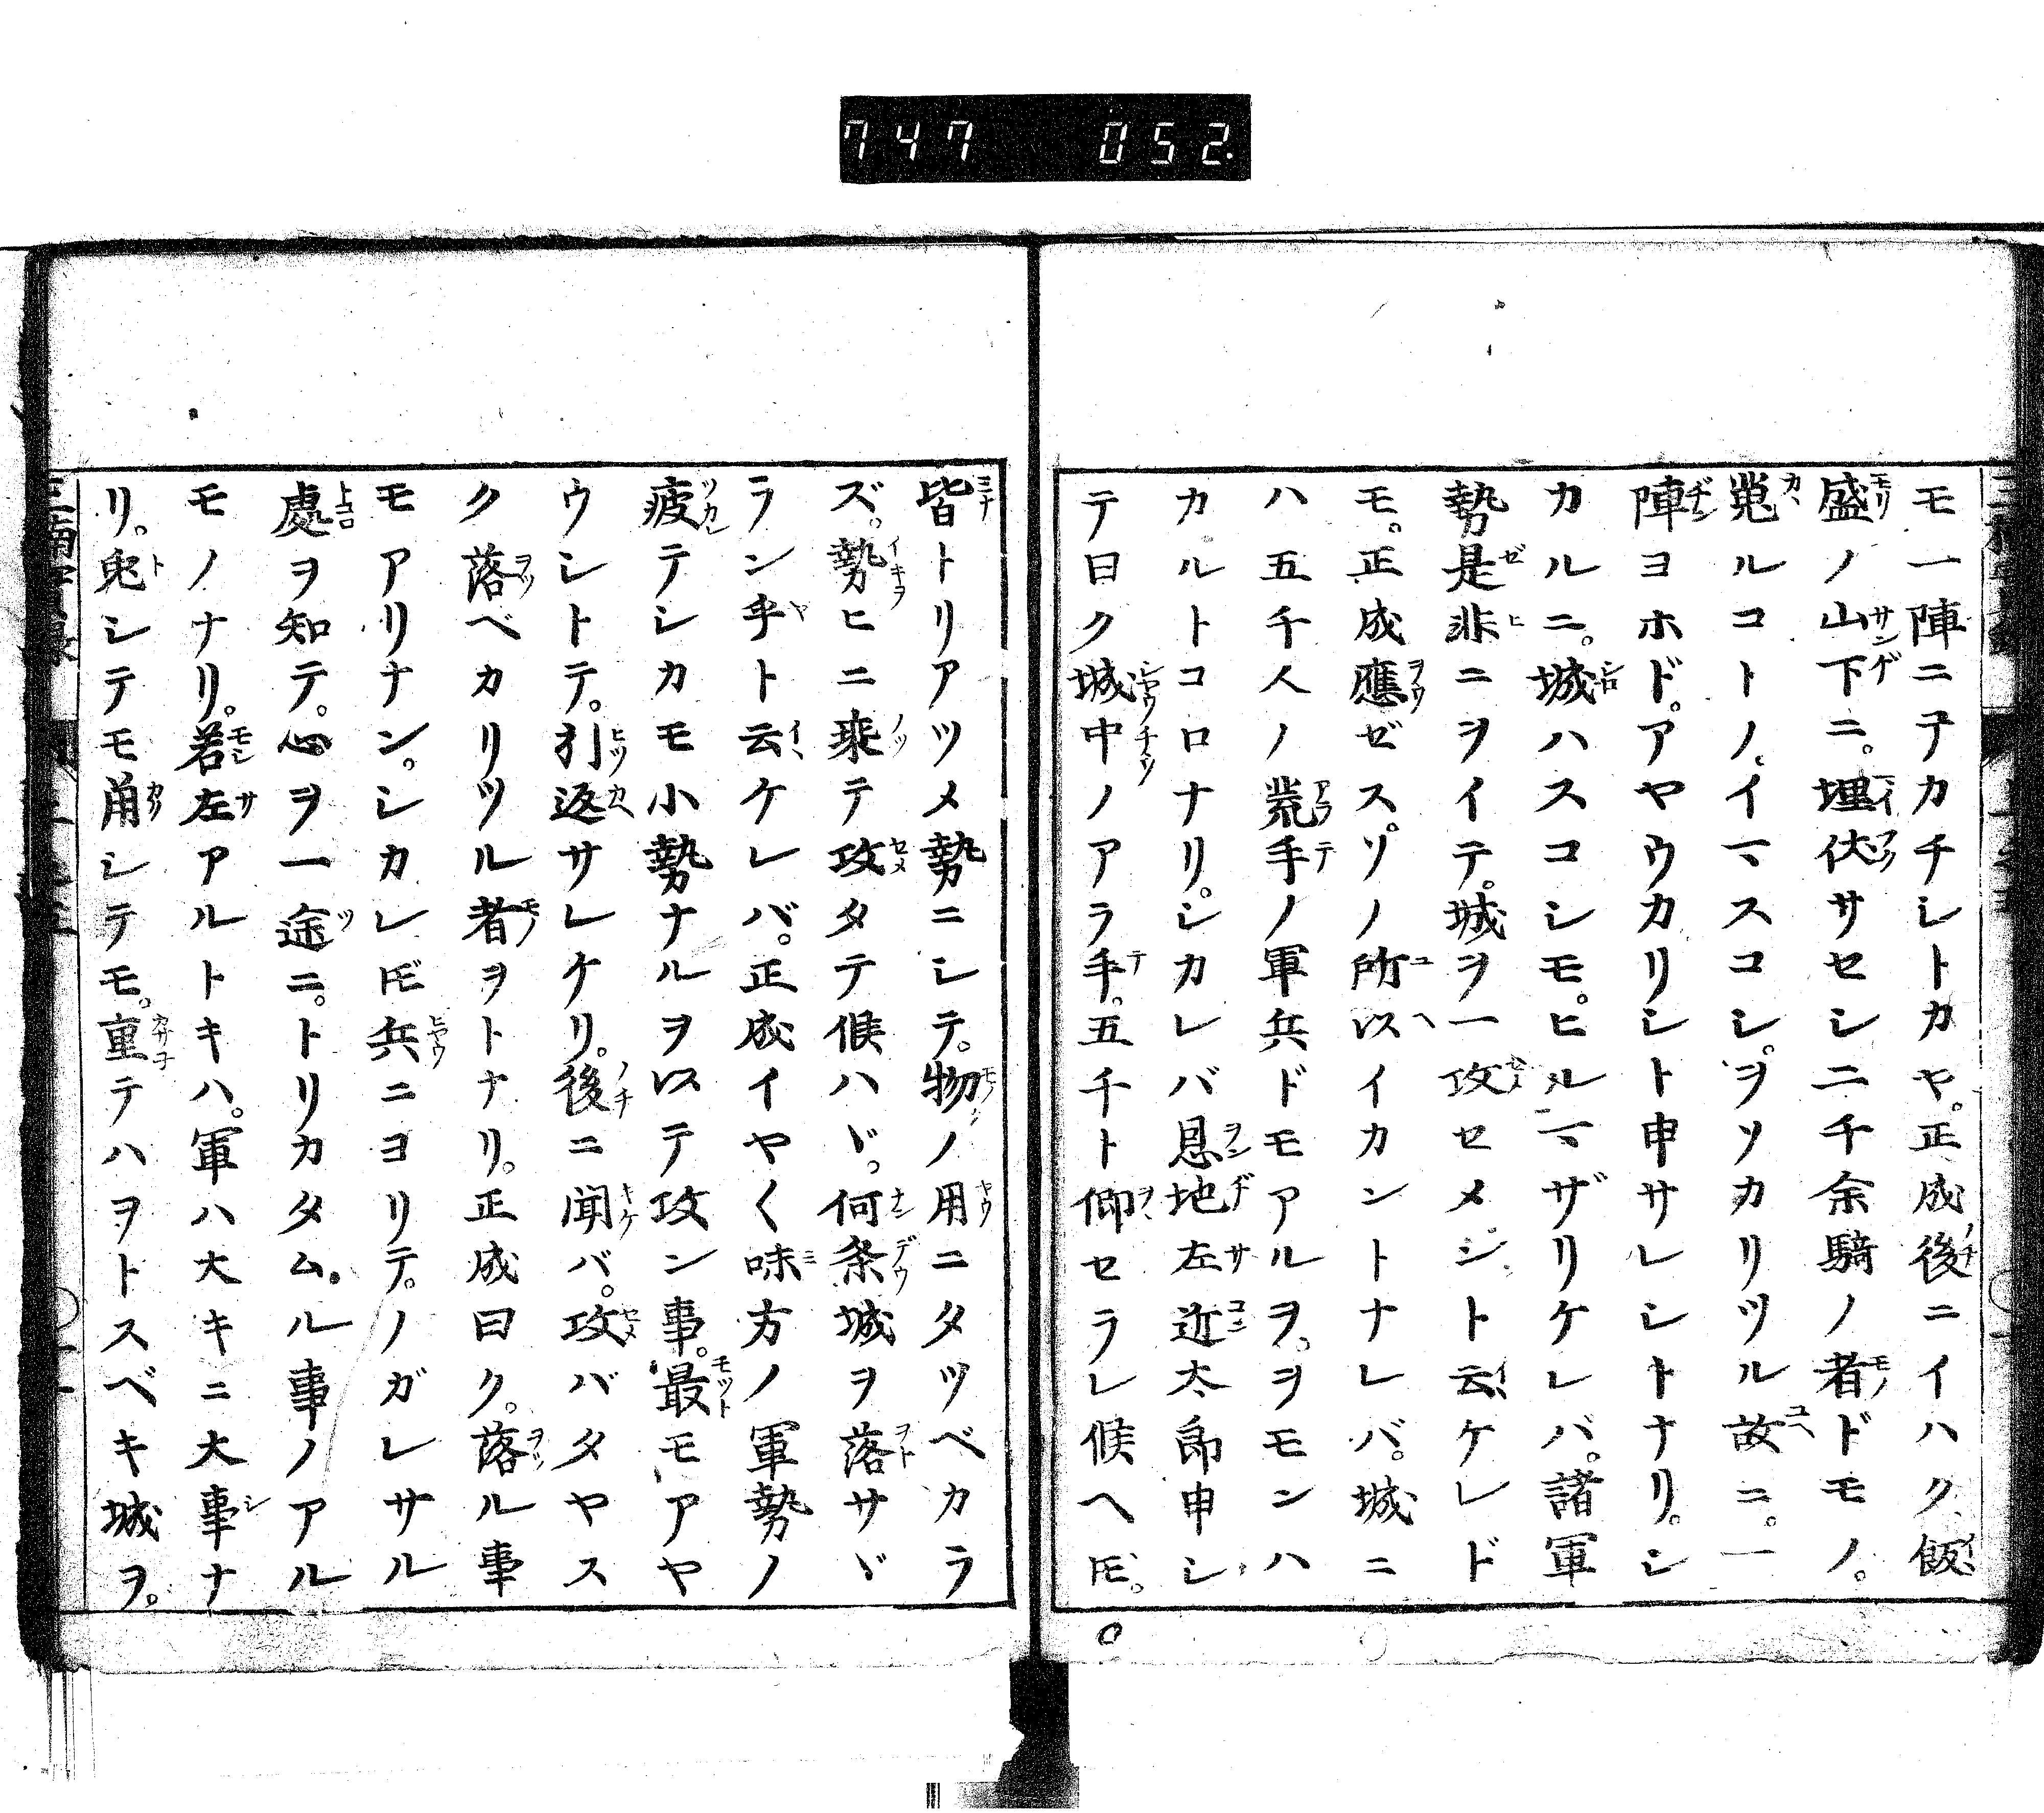 747 052
モ一陣ニ子カチシトカヤ。正成後ニイハク飯
盛ノ山下ニ。埋伏サセシ二千余騎ノ者ドモノ。
ルコトノ。イマスコシ。ヲソカリツル故ニ。一
陣ヨホド。アヤウカリシト申サレシトナリ。シ
カルニ。城ハスコシモ。ヒルマザリケレバ。諸軍
勢是非ニヲイテ。城ヲ一攻セメシト云ケレド
モ。正成應ゼス。ソノ所以イカントナレバ。城ニ
ハ五千人ノ荒手ノ軍兵ドモアルヲ。ヲモンハ
カルトコロナリ。シカレバ恩地左近太郎申シ
テ曰ク城中ノアラ手。五千ト仰セラレ候ヘ𪜈。
皆トリアツメ勢ニシテ。物ノ用ニタツベカラ
ズ。勢ヒニ乗テ攻タテ候ハヾ。何条城ヲ落サヾ
ラン乎ト云ケレバ。正成イヤ〱味方ノ軍勢ノ
疲テシカモ小勢ナルヲ以テ攻ン事。最モアヤ
ウシトテ。引返サレケリ。後ニ聞バ。攻バタヤス
ク落ベカリツル者ヲトナリ。正成曰ク。落ル事
モアリナン。シカレ𪜈兵ニヨリテ。ノガレサル
處ヲ知テ。心ヲ一途ニ。トリカタム。ル事ノアル
モノナリ。若左アルトキハ。軍ハ大キニ大事ナ
リ。兎シテモ角シテモ。重テハヲトスベキ城ヲ。